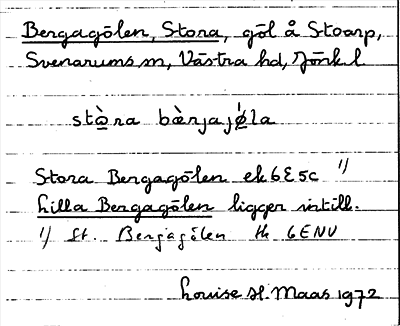 Bergagölen, Stora, göl å Stoarp,
Svenarums sn, Västra hd, Jönk. l.
stò̱ra bæ̀rjajǿ̱la
Stora Bergagölen ek 6E5c 1)
Lilla Bergagölen ligger intill.
1) St. Bergagölen tk 6ENV
Louise H. Maas 1972